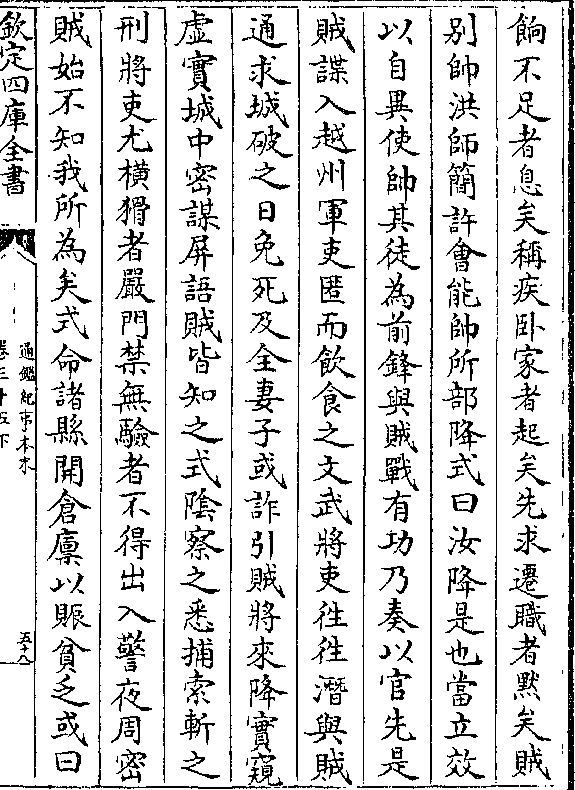 餉不足者息矣稱疾卧家者起矣先求遷職者黙矣賊
别帥洪師簡許㑹能帥所部降式曰汝降是也當立效
以自異使帥其徒為前鋒與賊戰有功乃奏以官先是
賊諜入越州軍吏匿而飲食之文武將吏往往潛與賊
通求城破之日免死及全妻子或詐引賊將來降實窺
虛實城中密謀屏語賊皆知之式陰察之悉捕索斬之
刑將吏尤橫猾者嚴門禁無驗者不得出入警夜周密
賊始不知我所為矣式命諸縣開倉廪以賑貧乏或曰
欽定四庫全書
通鑑紀事本末
卷三十五下
五十八